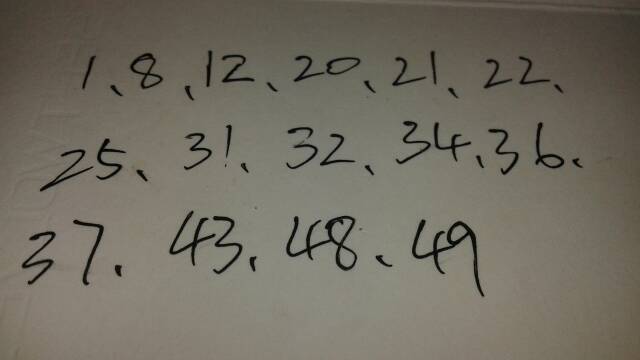 1、8、12、20、21、22、
25、31、32、34、36、
37、43、48、49